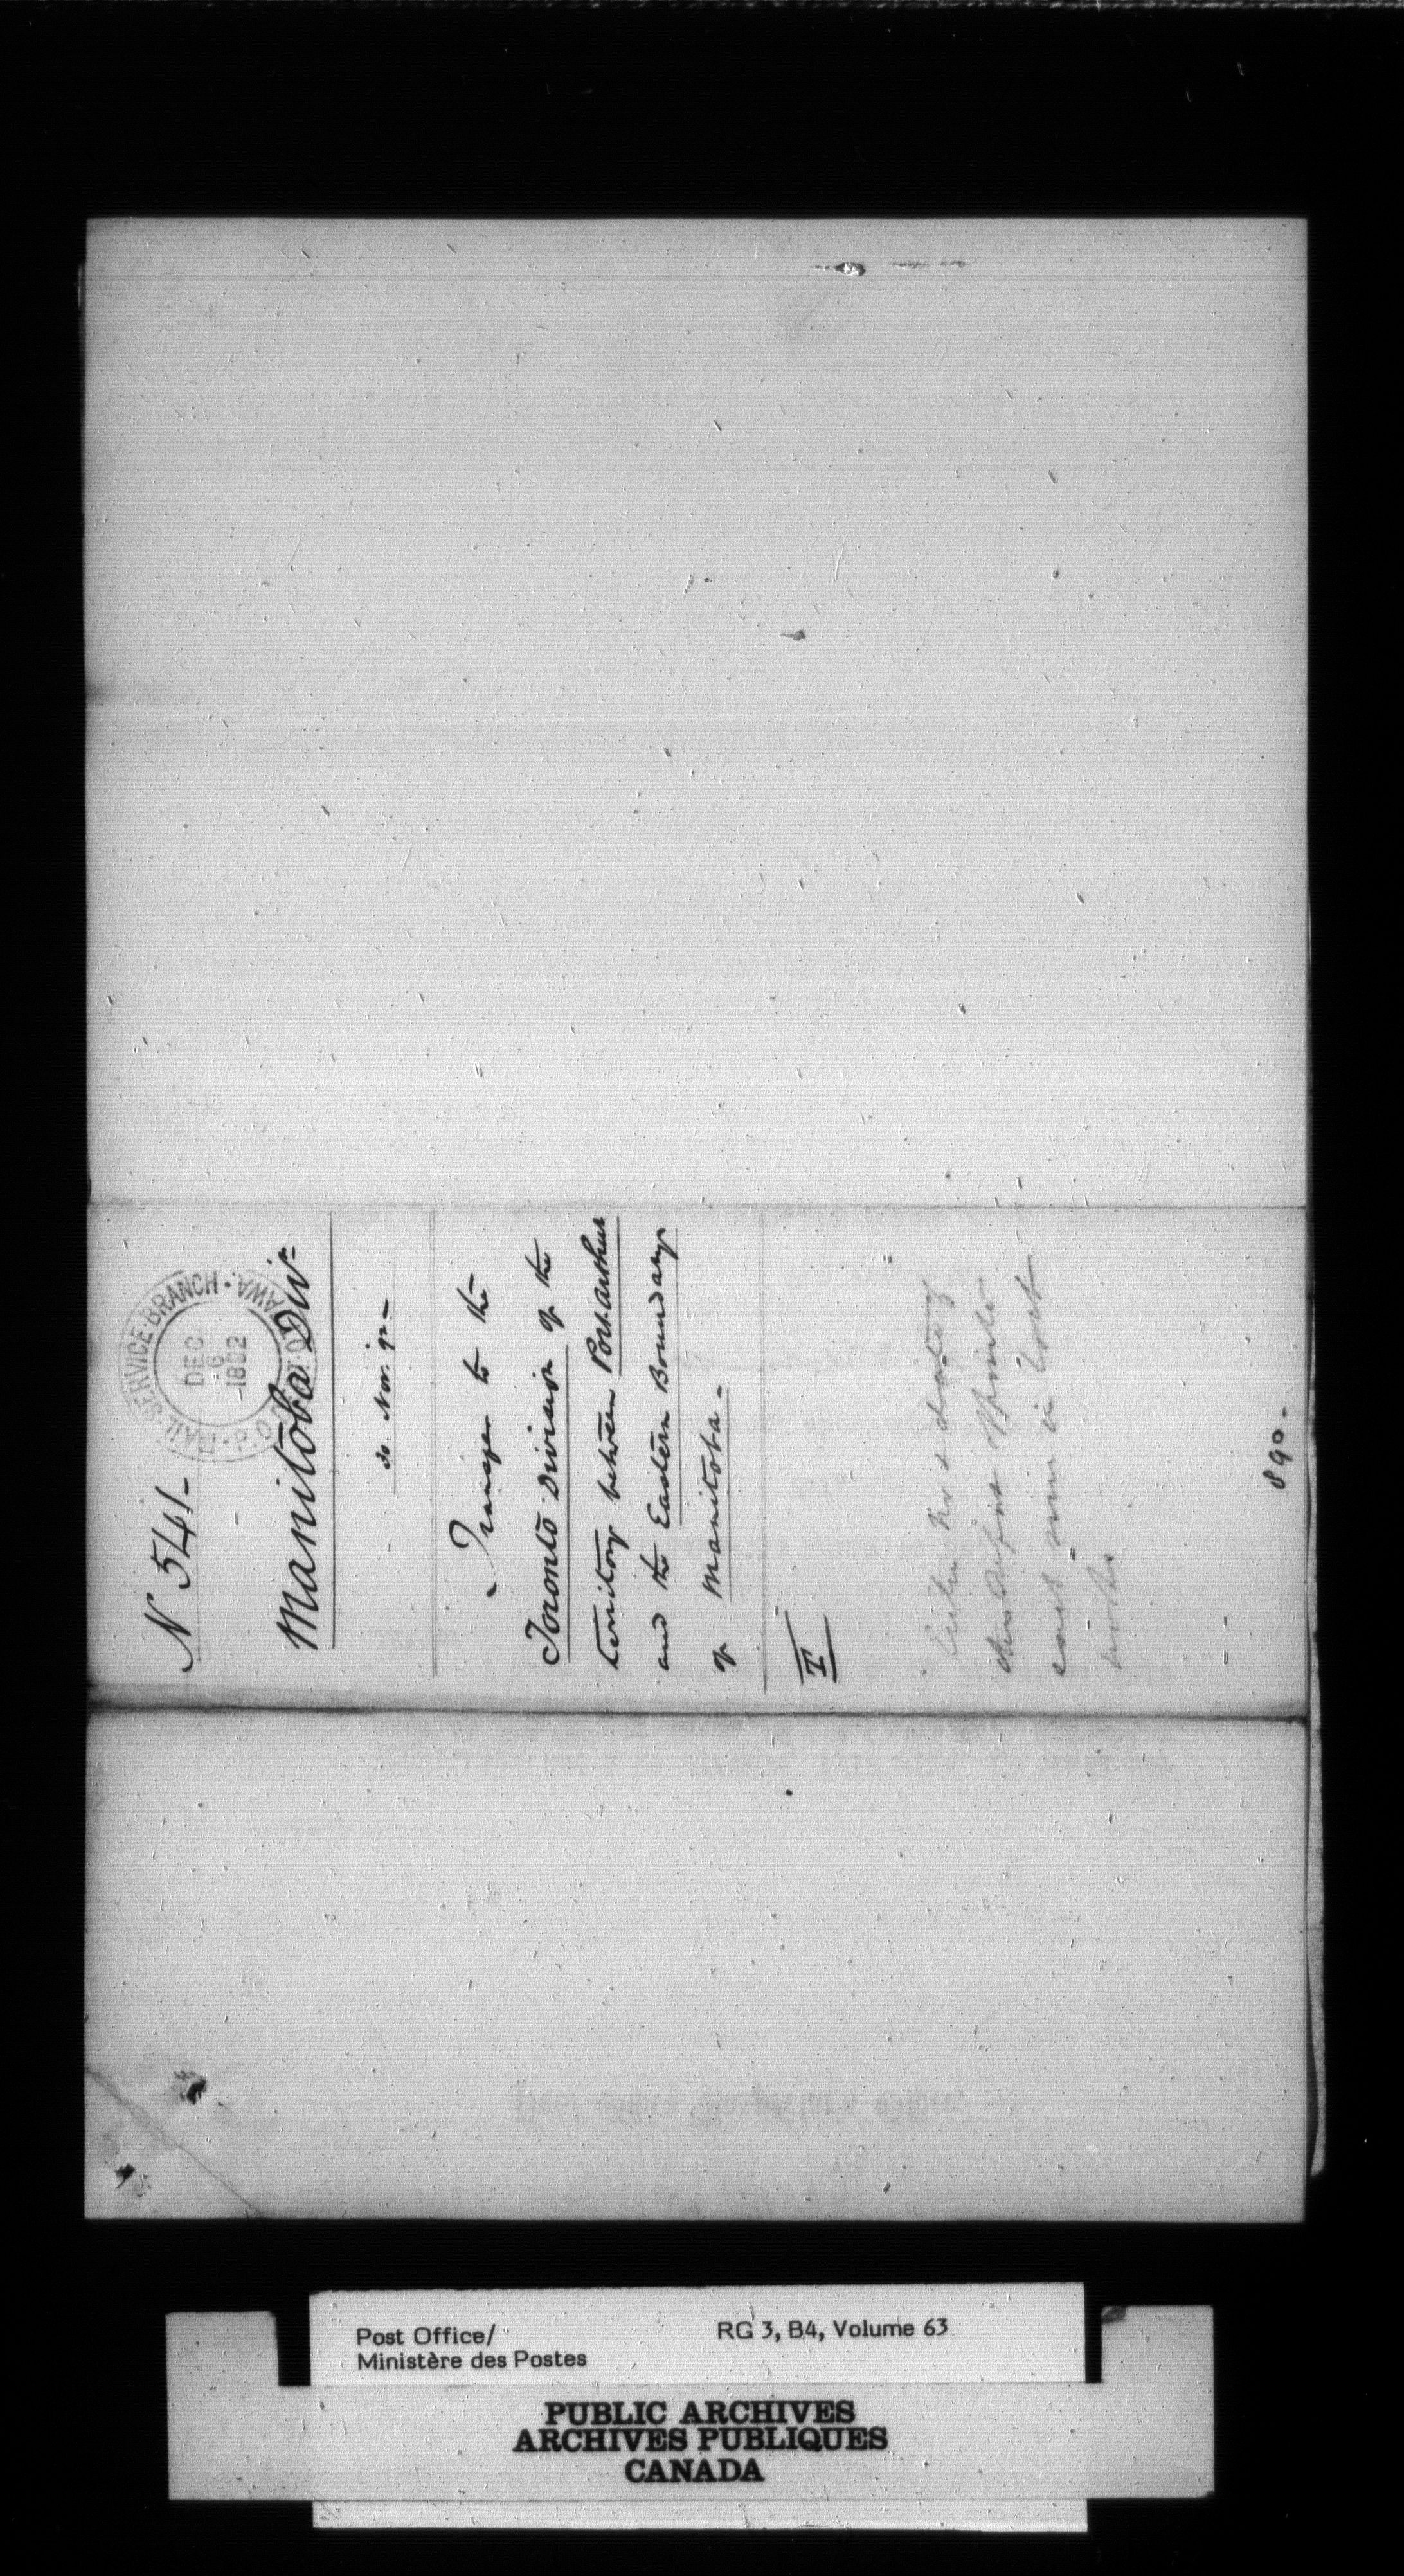 N 541-
MAIL·SERVICE·BRANCH·
P.O.
DEC
6
1892
Manitoba Divn
30 Nov. 92-
Transfer to the
Toronto Division of the
territory between Port Arthur
and the Eastern Boundary
of Manitoba-
T
Enter No & date of
opposite
each in
890-
Post Office/
Ministère des Postes
RG 3, B4, Volume 63
PUBLIC ARCHIVES
ARCHIVES PUBLIQUES
CANADA